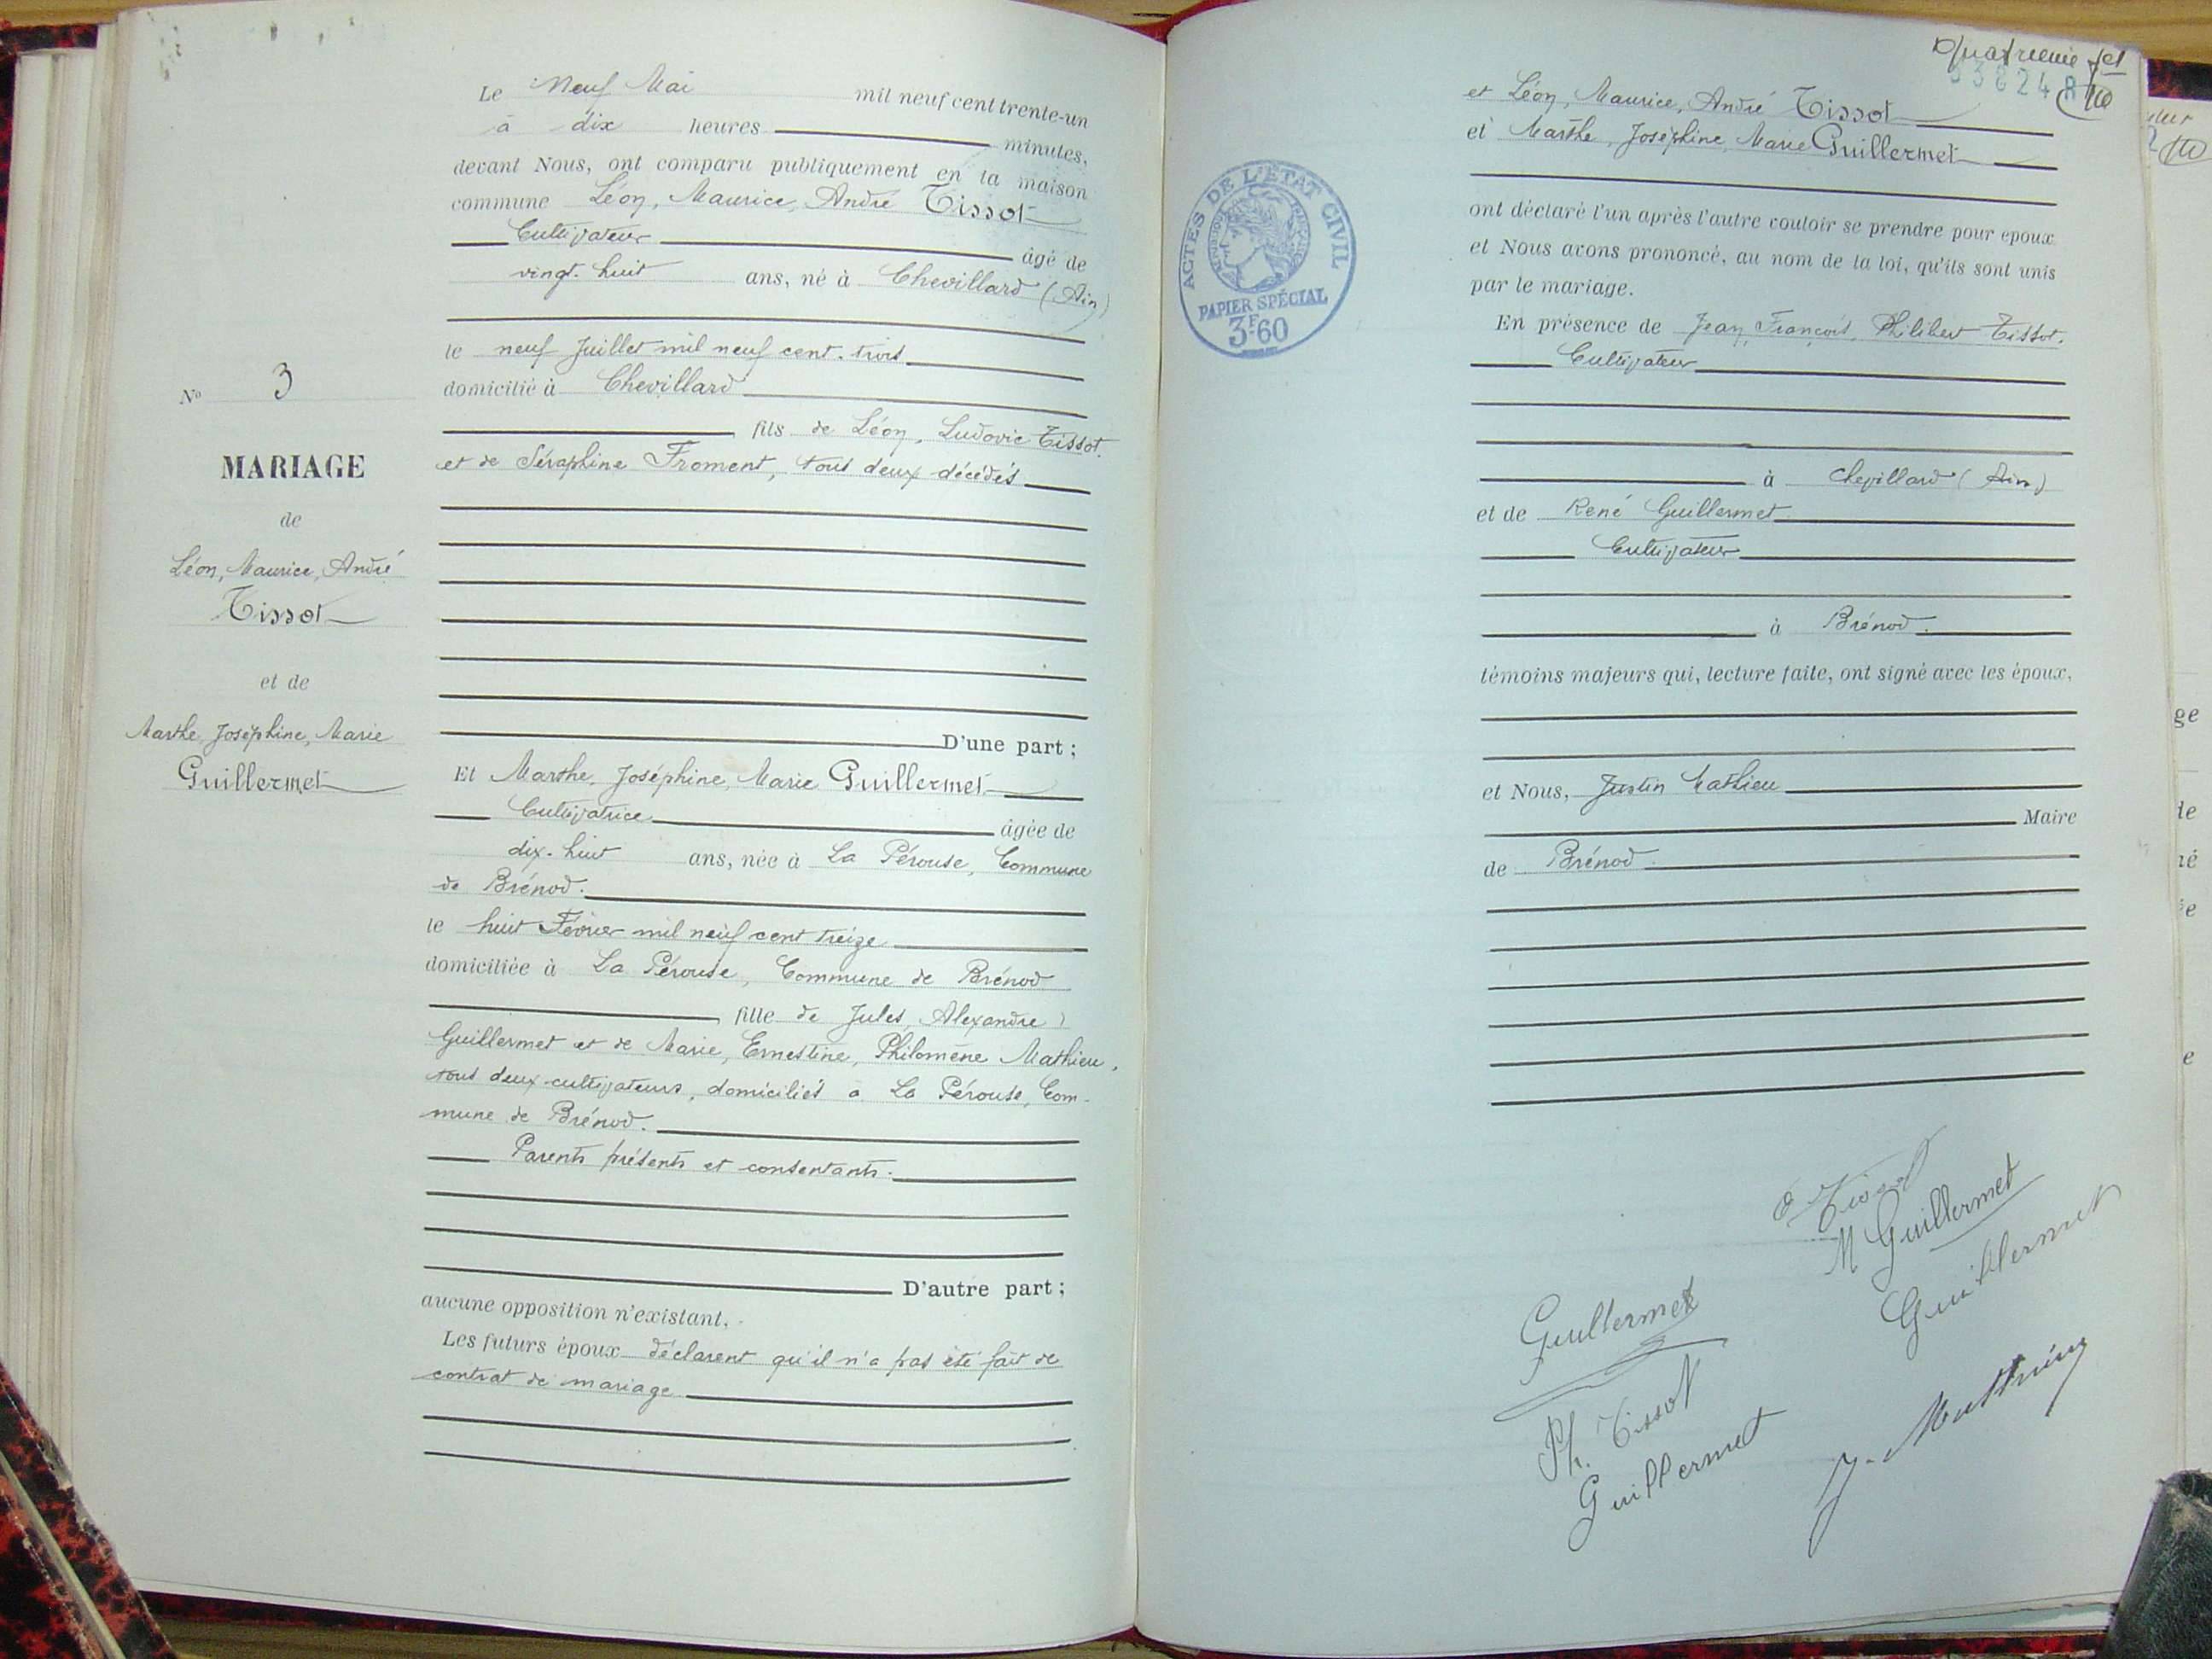 Le Neuf Mai mil neuf cent trente-un
à dix heures minutes,
devant Nous, ont comparu publiquement en la maison
commune Léon, Maurice, André Tissot
Cultivateur âgé de
vingt-huit ans, né à Chevillard (Ain)
le neuf Juillet mil neuf cent trois
domicilié à Chevillard
fils de Léon, Ludovic Tissot.
et de Séraphine Froment, tous deux décédés
N° 3
MARIAGE
de
Léon, Maurice, André
Tissot
et de
Marthe, Joséphine, Marie
Guillermet
D'une part ;
Et Marthe, Joséphine, Marie Guillermet
Cultivatrice âgée de
dix-huit ans, née à La Pérouse, Commune
de Brénod.
le huit Février mil neuf cent treize
domiciliée à La Pérouse, Commune de Brénod
fille de Jules, Alexandre
Guillermet et de Marie, Ernestine, Philomène Mathieu,
tous deux cultivateurs, domiciliés à La Pérouse, Com-
mune de Brénod.
Parents présents et consentants.
D'autre part ;
aucune opposition n'existant.
Les futurs époux déclarent qu'il n'a pas été fait de
contrat de mariage
Quatrième
et Léon, Maurice, André Tissot
et Marthe, Joséphine, Marie Guillermet
ACTES DE L'ÉTAT CIVIL
RÉPUBLIQUE FRANÇAISE
PAPIER SPÉCIAL
3F.60
ont déclaré l'un après l'autre vouloir se prendre pour époux
et Nous avons prononcé, au nom de la loi, qu'ils sont unis
par le mariage.
En présence de Jean, François, Philibert Tissot.
Cultivateur
à Chevillard (Ain)
et de René Guillermet
Cultivateur
à Brénod.
témoins majeurs qui, lecture faite, ont signé avec les époux,
et Nous, Justin Mathieu
Maire
de Brénod
Tissot
M Guillermet
Guillermet
Guillermet
Ph. Tissot
Guillermet
J. Mathieu